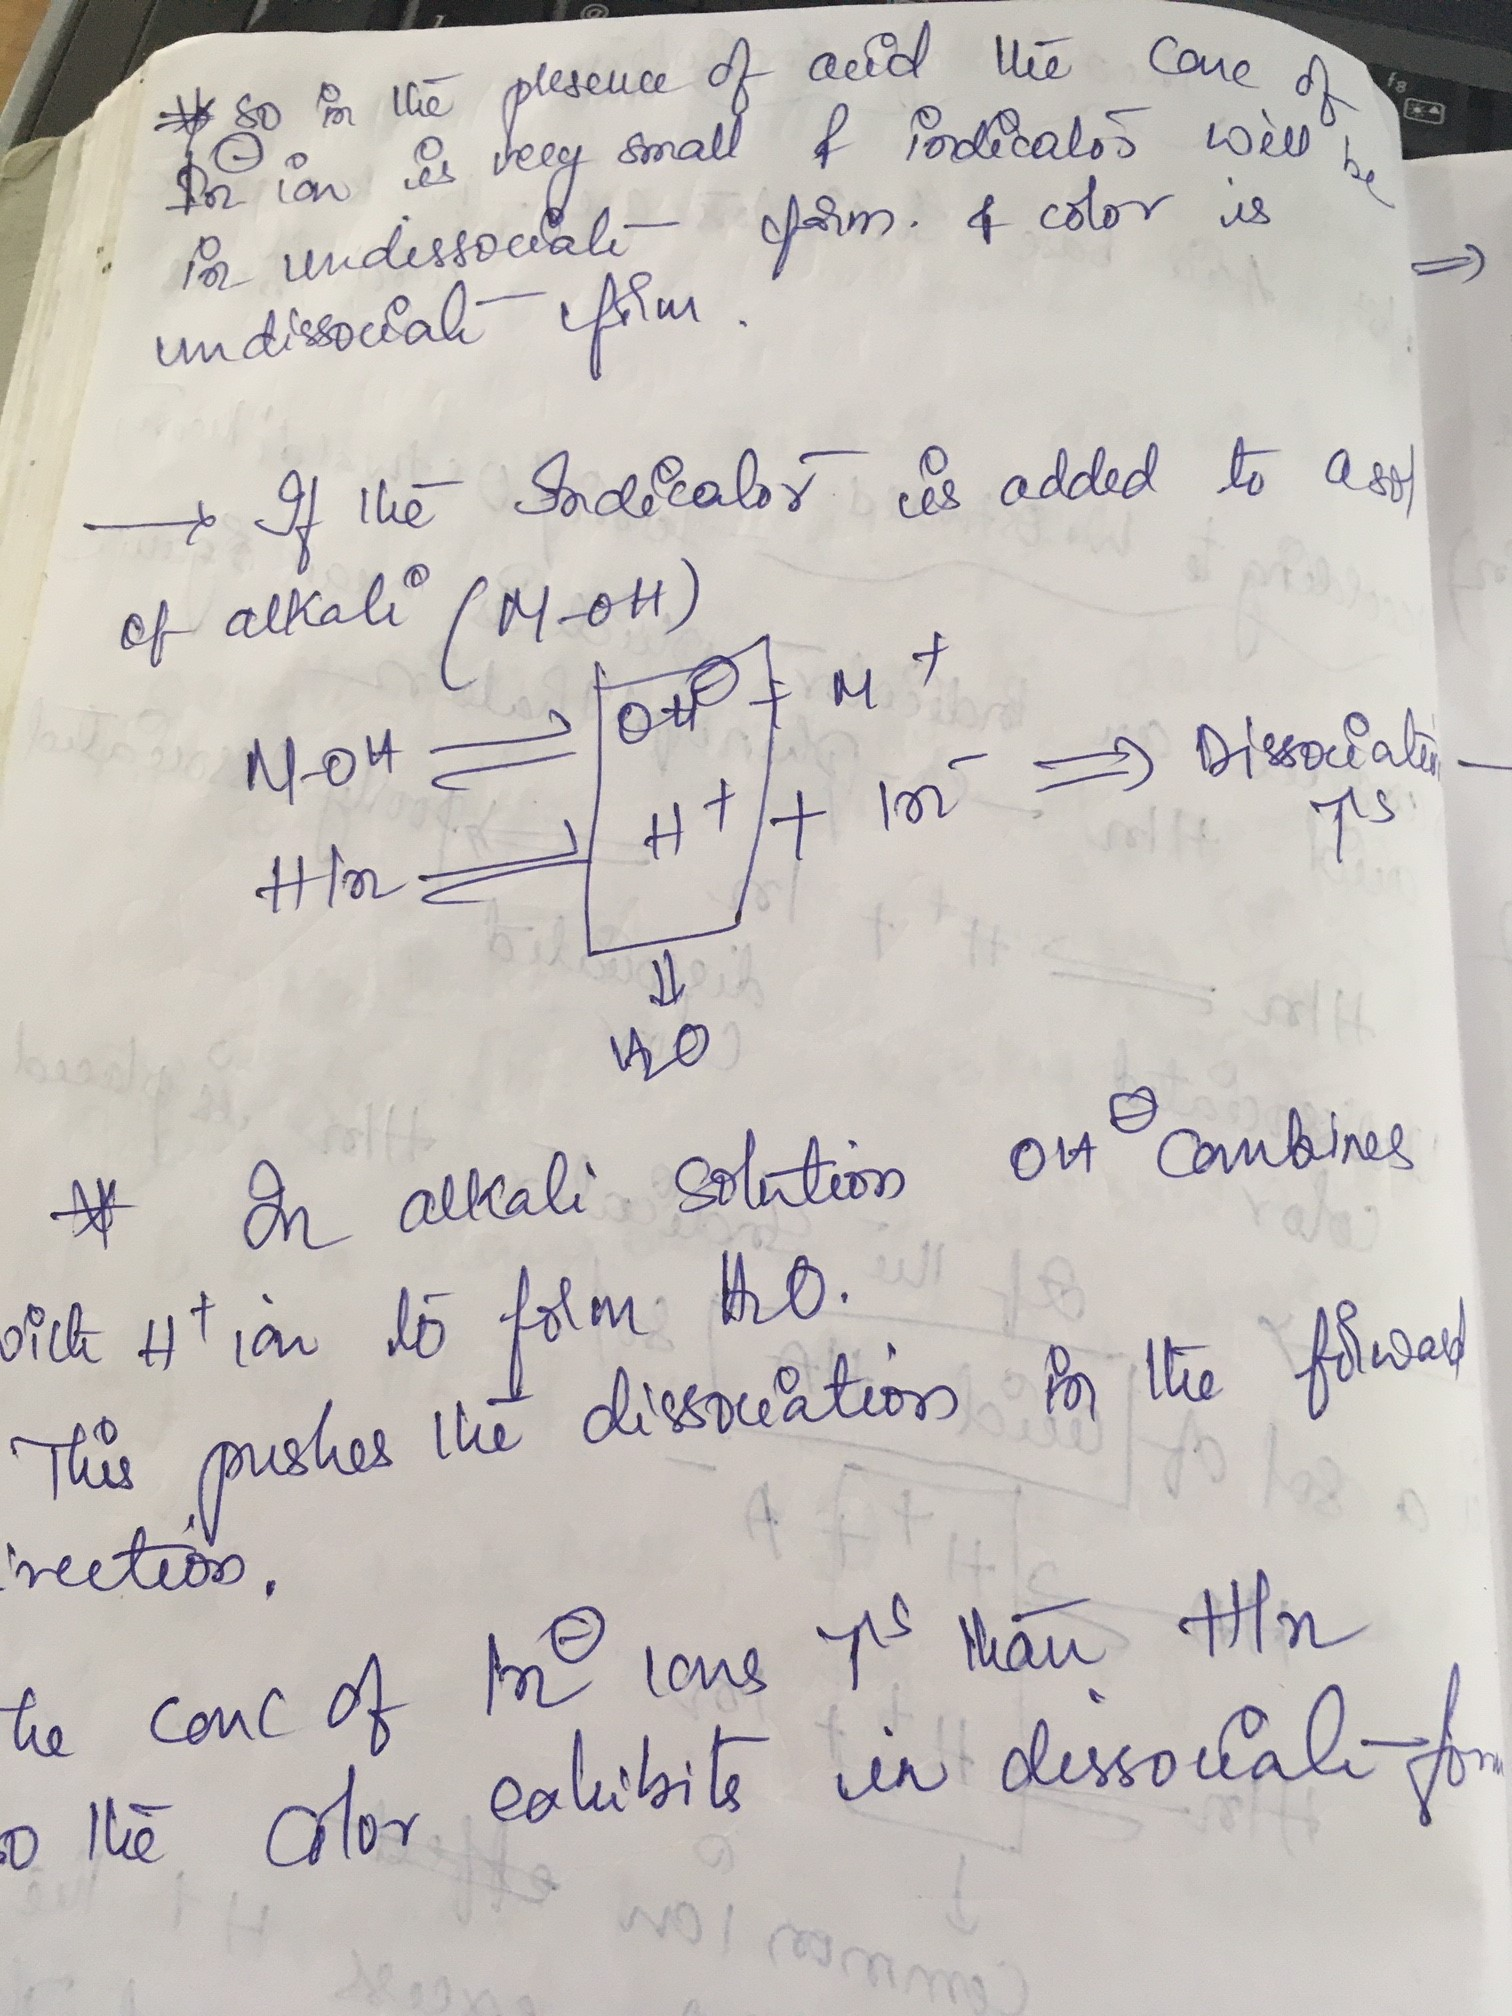 * so in the presence of acid the conc of
In⊖ ion is very small & indicator will be
in undissociate form. & color is
undissociate form.
⇒
→ If the Indicator is added to a sol
of alkali (M-OH)
M-OH ⇌ OH⊖ + M+
HIn ⇌ H+ + In- ⇒ Dissociation
↑s
⇓
H2O
* In alkali solution OH⊖ combines
with H+ ion to form H2O.
This pushes the dissociation in the forward
irection.
he conc of In⊖ ions ↑s than HIn
so the color exhibits in dissociate form